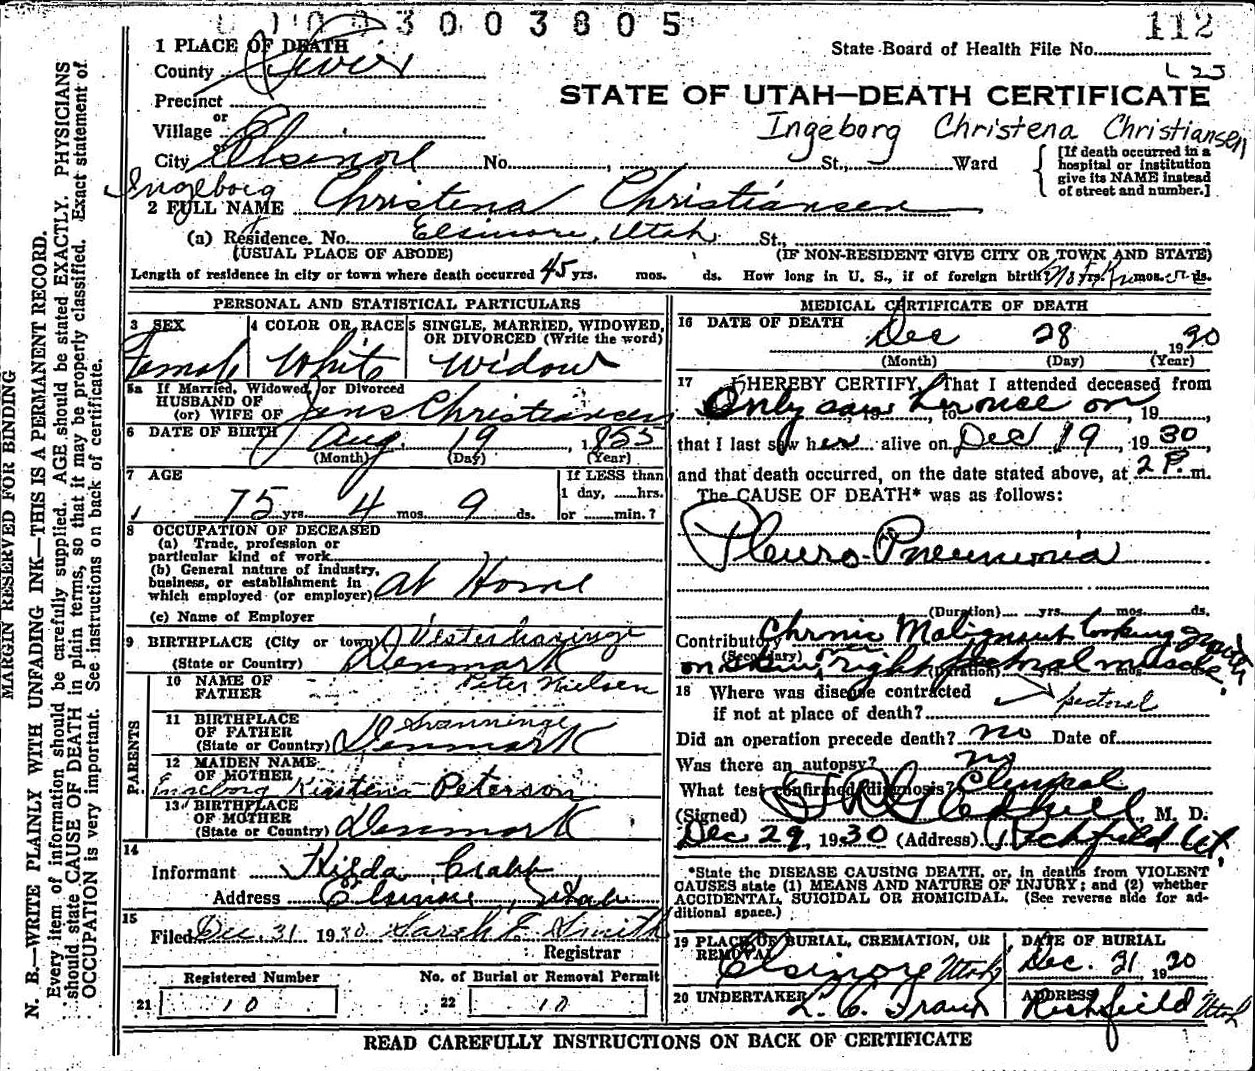 003003805
112
1 PLACE OF DEATH
State Board of Health File No.
County Sevier
Precinct
STATE OF UTAH—DEATH CERTIFICATE
or
Village
Ingeborg Christena Christiansen
or
City Elsinore No. St., Ward
[If death occurred in a hospital or institution give its NAME instead of street and number.]
Ingeborg
2 FULL NAME Christena Christiansen
(a) Residence. No. Elsinore, Utah St.,
(USUAL PLACE OF ABODE) (IF NON-RESIDENT GIVE CITY OR TOWN AND STATE)
Length of residence in city or town where death occurred 45 yrs. mos. ds. How long in U. S., if of foreign birth? Not Known yrs. mos. ds.
PERSONAL AND STATISTICAL PARTICULARS
3 SEX
Female
4 COLOR OR RACE
White
5 SINGLE, MARRIED, WIDOWED, OR DIVORCED (Write the word)
Widow
5a If Married, Widowed, or Divorced
HUSBAND OF
(or) WIFE OF Jens Christiansen
6 DATE OF BIRTH Aug 19 1855
(Month) (Day) (Year)
7 AGE
75 yrs. 4 mos. 9 ds.
If LESS than
1 day, hrs.
or min.?
8 OCCUPATION OF DECEASED
(a) Trade, profession or
particular kind of work
(b) General nature of industry,
business, or establishment in
which employed (or employer) At Home
(c) Name of Employer
9 BIRTHPLACE (City or town)
(State or Country) Denmark
PARENTS
10 NAME OF FATHER Peter Nielsen
11 BIRTHPLACE OF FATHER
(State or Country) Denmark
12 MAIDEN NAME OF MOTHER
Ingeborg Kirstena Peterson
13 BIRTHPLACE OF MOTHER
(State or Country) Denmark
14
Informant Hilda Crabb
Address Elsinore, Utah
15
Filed Dec. 31 1930 Sarah E. Smith
Registrar
Registered Number
21 10
No. of Burial or Removal Permit
22 10
MEDICAL CERTIFICATE OF DEATH
16 DATE OF DEATH
Dec 28 1930
(Month) (Day) (Year)
17 I HEREBY CERTIFY, That I attended deceased from
Only saw her once on, 19 , to , 19
that I last saw her alive on Dec 19 1930
and that death occurred, on the date stated above, at 2 P. m.
The CAUSE OF DEATH* was as follows:
Pleuro-Pneumonia
(Duration) yrs. mos. ds.
Contributory Chronic Malignant looking growth
(Secondary)
on skin, over right pectoral muscle.
(Duration) yrs. mos. ds.
18 Where was disease contracted
if not at place of death?
pectoral
Did an operation precede death? no Date of
Was there an autopsy? no
What test confirmed diagnosis? Clinical
(Signed) M. D.
Dec 29, 1930 (Address) Richfield Ut.
*State the DISEASE CAUSING DEATH, or, in deaths from VIOLENT
CAUSES state (1) MEANS AND NATURE OF INJURY; and (2) whether
ACCIDENTAL, SUICIDAL OR HOMICIDAL. (See reverse side for ad-
ditional space.)
19 PLACE OF BURIAL, CREMATION, OR REMOVAL
Elsinore Utah
DATE OF BURIAL
Dec. 31 1930
20 UNDERTAKER
ADDRESS
Richfield Utah
READ CAREFULLY INSTRUCTIONS ON BACK OF CERTIFICATE
MARGIN RESERVED FOR BINDING
N. B.—WRITE PLAINLY WITH UNFADING INK—THIS IS A PERMANENT RECORD.
Every item of information should be carefully supplied. AGE should be stated EXACTLY. PHYSICIANS
should state CAUSE OF DEATH in plain terms, so that it may be properly classified. Exact statement of
OCCUPATION is very important. See instructions on back of certificate.